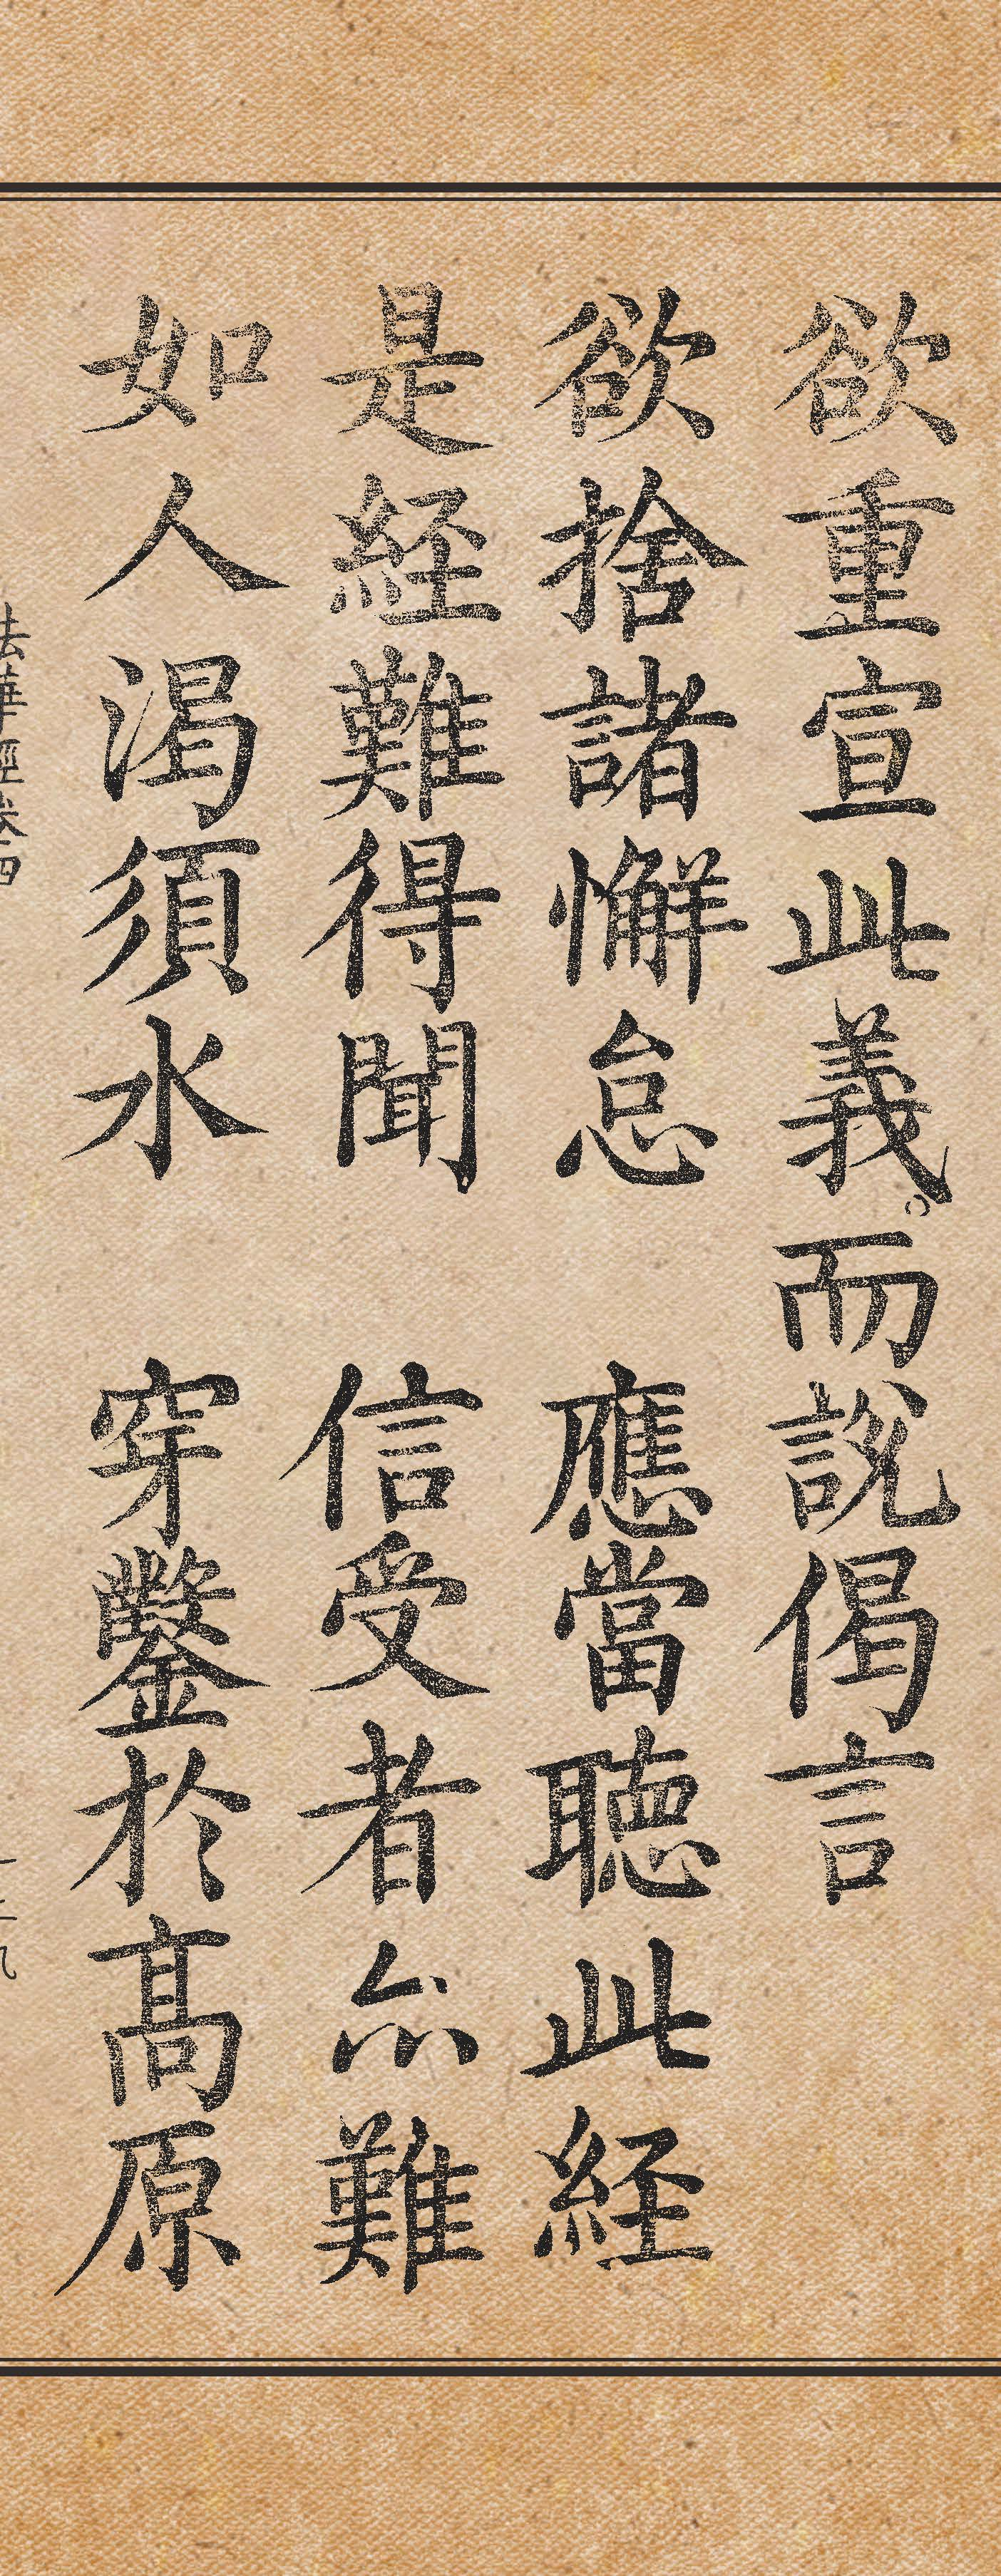 欲重宣此義。而說偈言
欲捨諸懈怠　應當聴此経
是経難得聞　信受者亦難
如人渴須水　穿鑿於髙原
法華經卷四